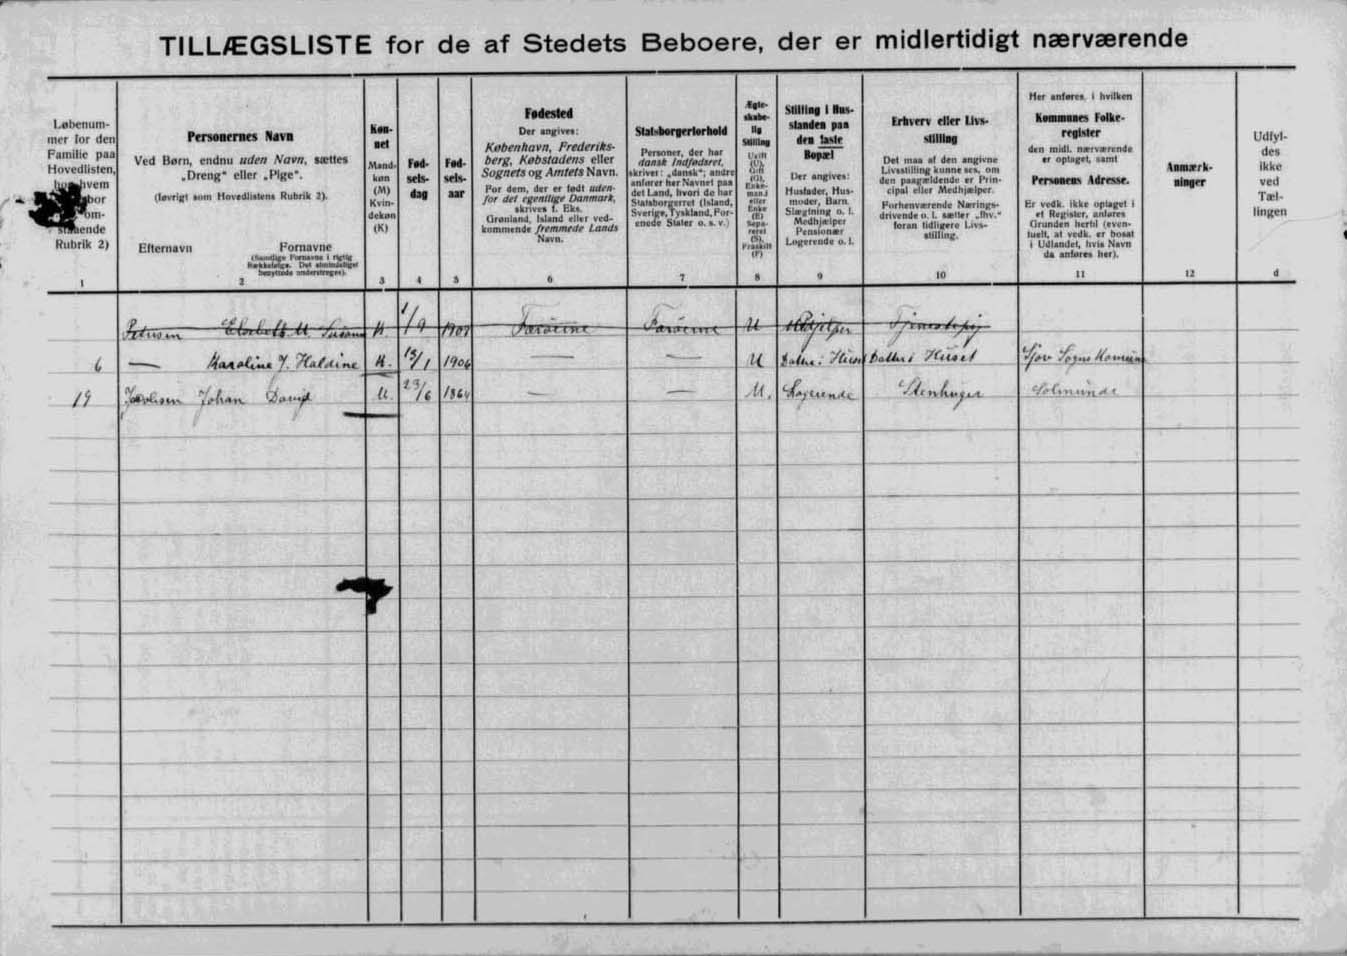 TILLÆGSLISTE for de af Stedets Beboere, der er midlertidigt nærværende
Løbenum-
mer for den
Familie paa
Hovedlisten,
hvem
bor
om-
staaende
Rubrik 2)
1
Personernes Navn
Ved Børn, endnu uden Navn, sættes
„Dreng" eller „Pige".
(Iøvrigt som Hovedlistens Rubrik 2).
Efternavn
Fornavne
(Samtlige Fornavne i rigtig
Rækkefølge. Det almindeligst
benyttede understreges).
2
Køn-
net
Mand-
køn
(M)
Kvin-
dekøn
(K)
3
Fød-
sels-
dag
4
Fød-
sels-
aar
5
Fødested
Der angives:
København, Frederiks-
berg, Købstadens eller
Sognets og Amtets Navn.
For dem, der er født uden-
for det egentlige Danmark,
skrives f. Eks.
Grønland, Island eller ved-
kommende fremmede Lands
Navn.
6
Statsborgerforhold
Personer, der har
dansk Indfødsret,
skriver: „dansk"; andre
anfører her Navnet paa
det Land, hvori de har
Statsborgerret (Island,
Sverige, Tyskland, For-
enede Stater o. s. v.)
7
Ægte-
skabe-
lig
Stilling
Ugift
(U),
Gift
(G),
Enke-
mand
eller
Enke
(E)
Sepa-
reret
(S),
Fraskilt
(F)
8
Stilling i Hus-
standen paa
den faste
Bopæl
Der angives:
Husfader, Hus-
moder, Barn,
Slægtning o. l.
Medhjælper
Pensionær
Logerende o. l.
9
Erhverv eller Livs-
stilling
Det maa af den angivne
Livsstilling kunne ses, om
den paagældende er Prin-
cipal eller Medhjælper.
Forhenværende Nærings-
drivende o. l. sætter „fhv."
foran tidligere Livs-
stilling.
10
Her anføres, i hvilken
Kommunes Folke-
register
den midl. nærværende
er optaget, samt
Personens Adresse.
Er vedk. ikke optaget i
et Register, anføres
Grunden hertil (even-
tuelt, at vedk. er bosat
i Udlandet, hvis Navn
da anføres her).
11
Anmærk-
ninger
12
Udfyl-
des
ikke
ved
Tæl-
lingen
d
Petersen M. K. 1/9 Færøerne Færøerne U Medhjelper Tjenestepig
6 — Karoline J. Haldine K. 13/1 1906 — — U Datter i Huset Datter i Huset Sjov Sogns Komuna
19 Johan David M. 23/6 1864 — — U. Logerende Stenhuger Solmunde